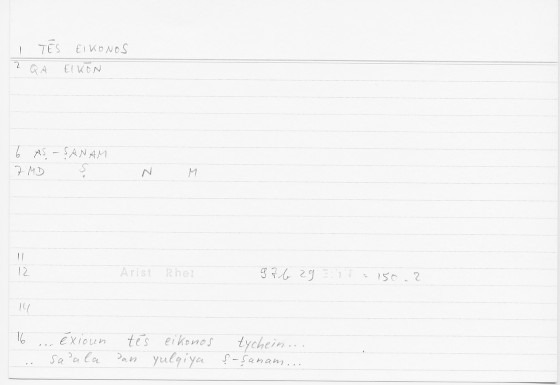 1 TĒS EIKONOS
2 QA EIKŌN
6 AṢ-ṢANAM
7 MD Ṣ N M
11
12 Arist Rhet 97b 29 = 150.2
14
16 ...ēxioun tēs eikonos tychein...
.. saʾala ʾan yulqiya ṣ-ṣanam...